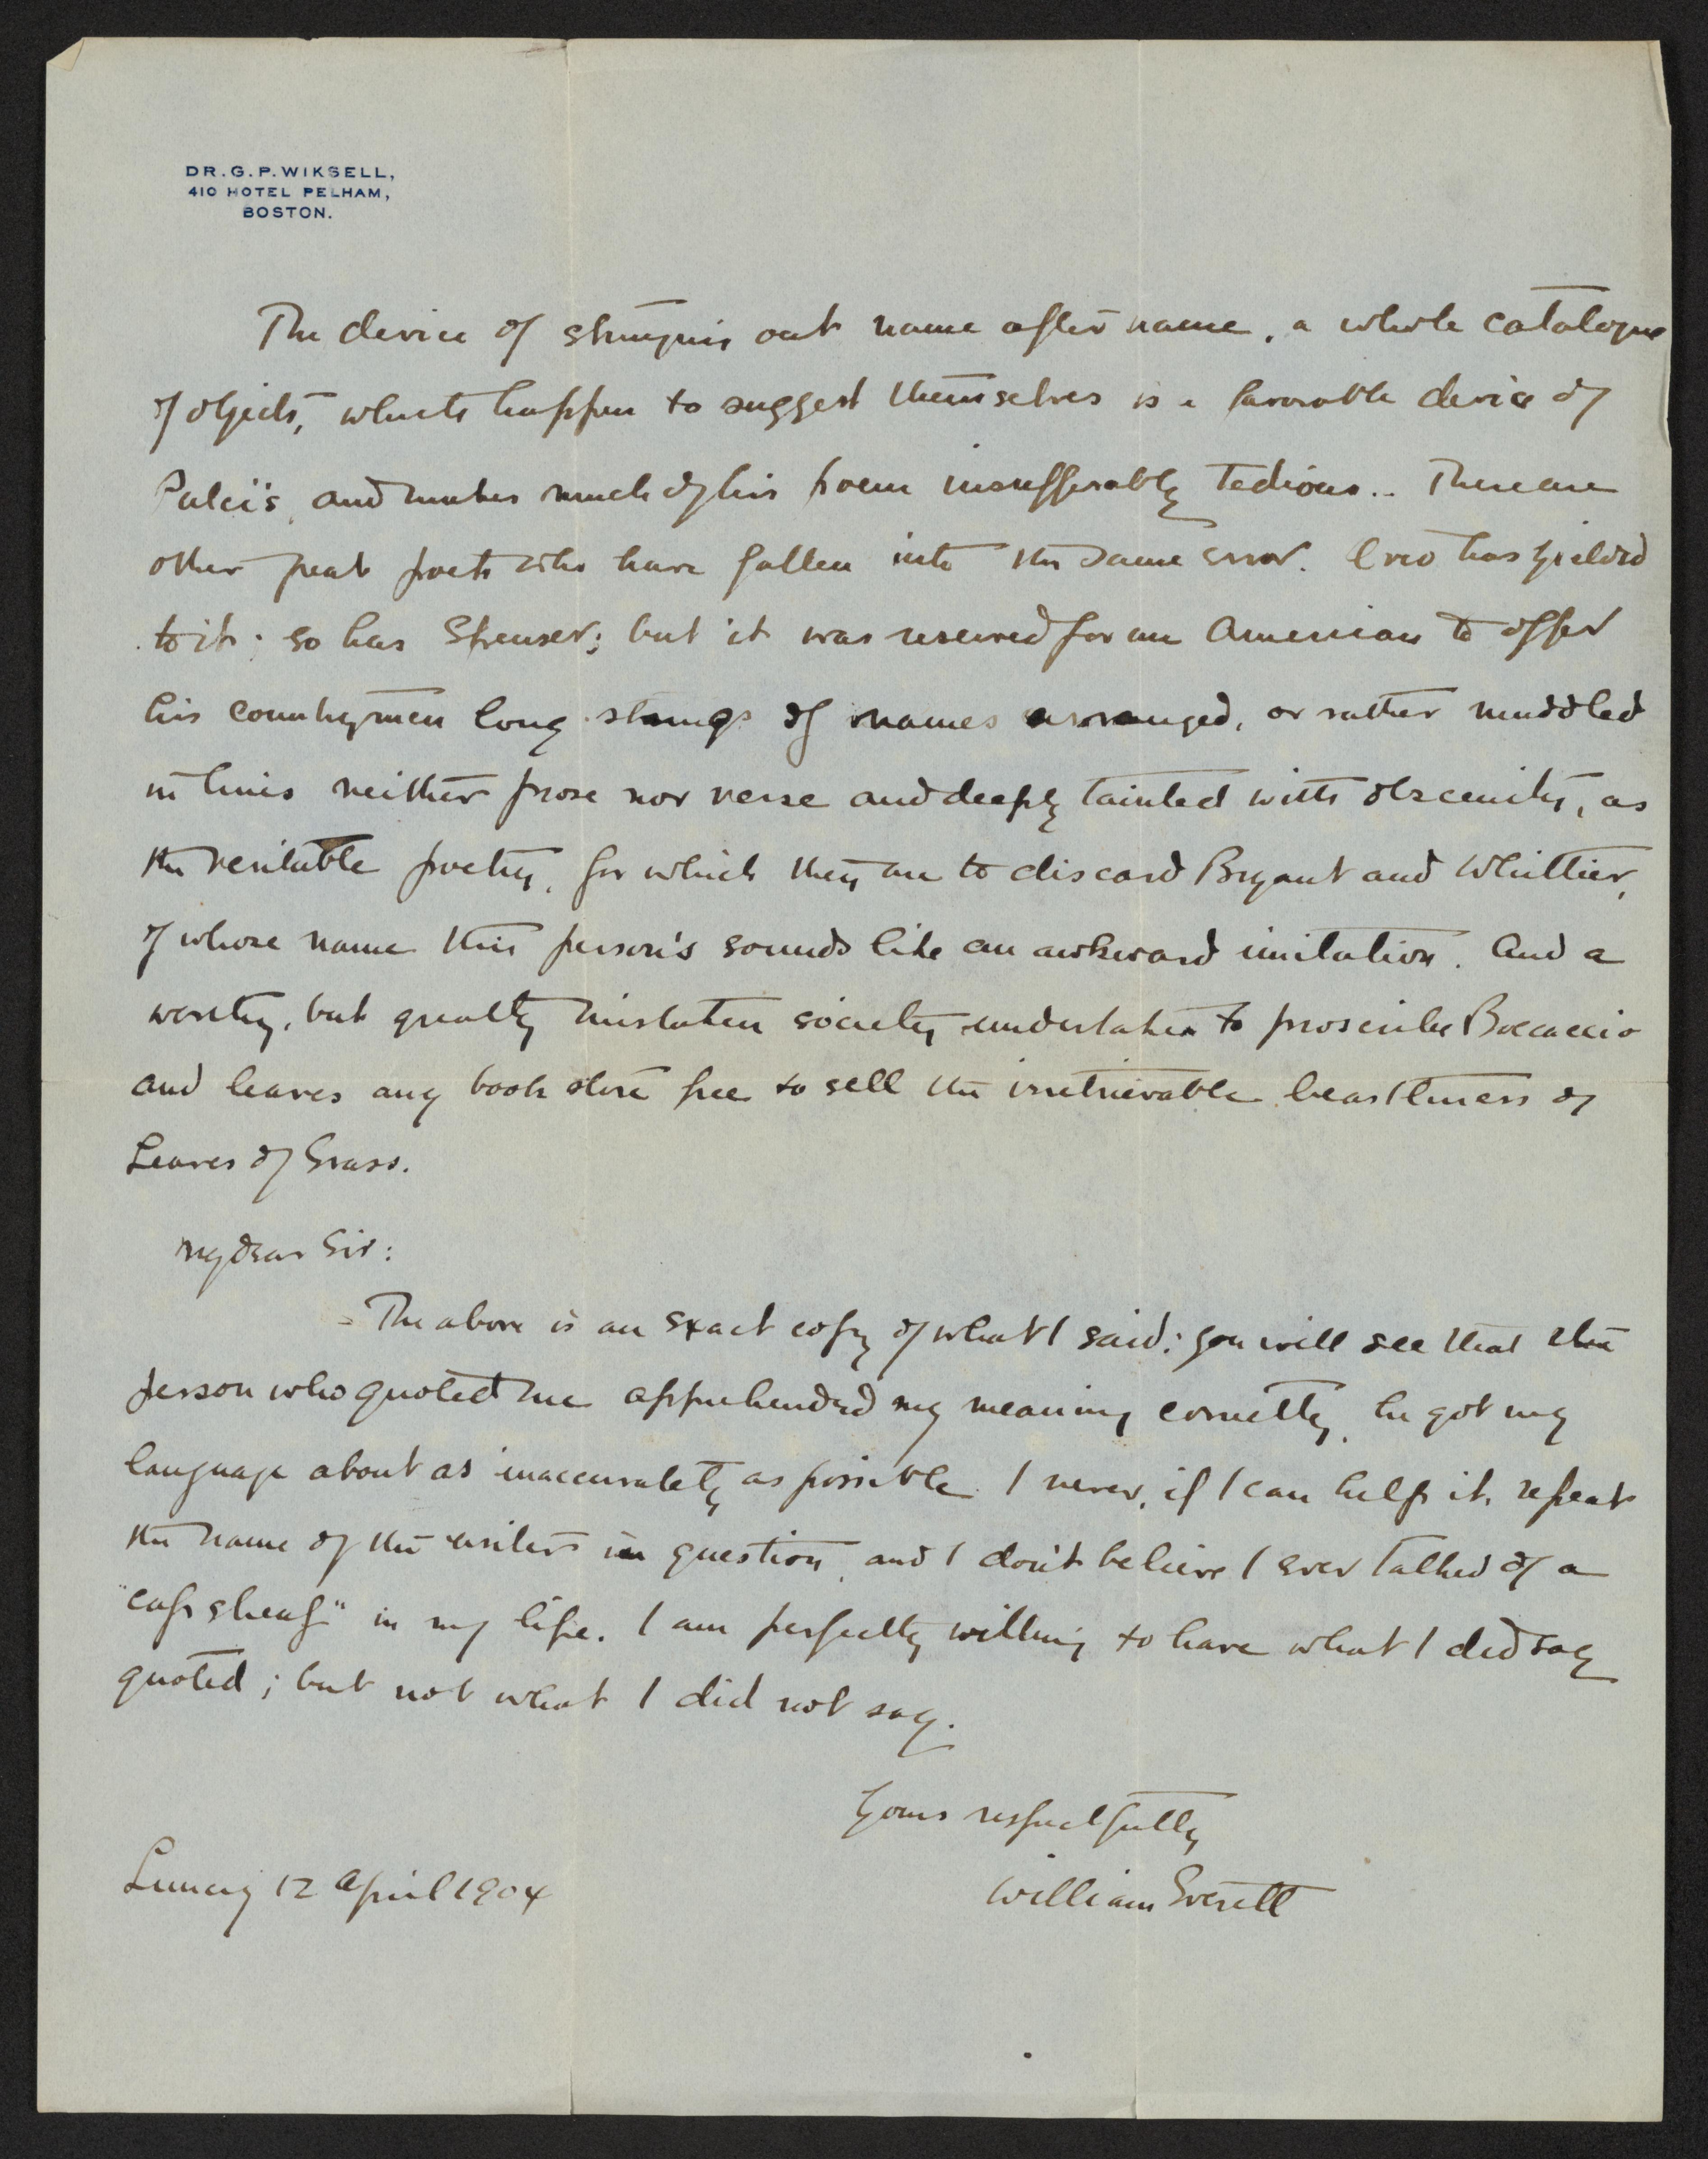 DR. G. P. WIKSELL,
410 HOTEL PELHAM,
BOSTON.
The device of stringing out name after name, a whole catalogue
of objects, which happen to suggest themselves is a favorable device of
Pulci's, and makes much of his poem insufferably tedious.. There are
other great poets who have fallen into the same error. Ovid has yielded
to it; so has Spenser; but it was reserved for an American to offer
his countrymen long strings of names arranged, or rather muddled
in lines neither prose nor verse and deeply tainted with obscenity, as
the veritable poetry, for which they are to discard Bryant and Whittier,
of whose name this person's sounds like an awkward imitation. And a
worthy, but greatly mistaken society undertakes to proscribe Boccaccio
and leaves any book store free to sell the irretrievable beastliness of
Leaves of Grass.
My dear Sir:
The above is an exact copy of what I said: you will see that the
person who quoted me apprehended my meaning correctly, he got my
language about as inaccurately as possible. I never, if I can help it, repeat
the name of the writer in question, and I don't believe I ever talked of a
"cap sheaf" in my life. I am perfectly willing to have what I did say
quoted; but not what I did not say.
Yours respectfully
William Everett
12 April 1904